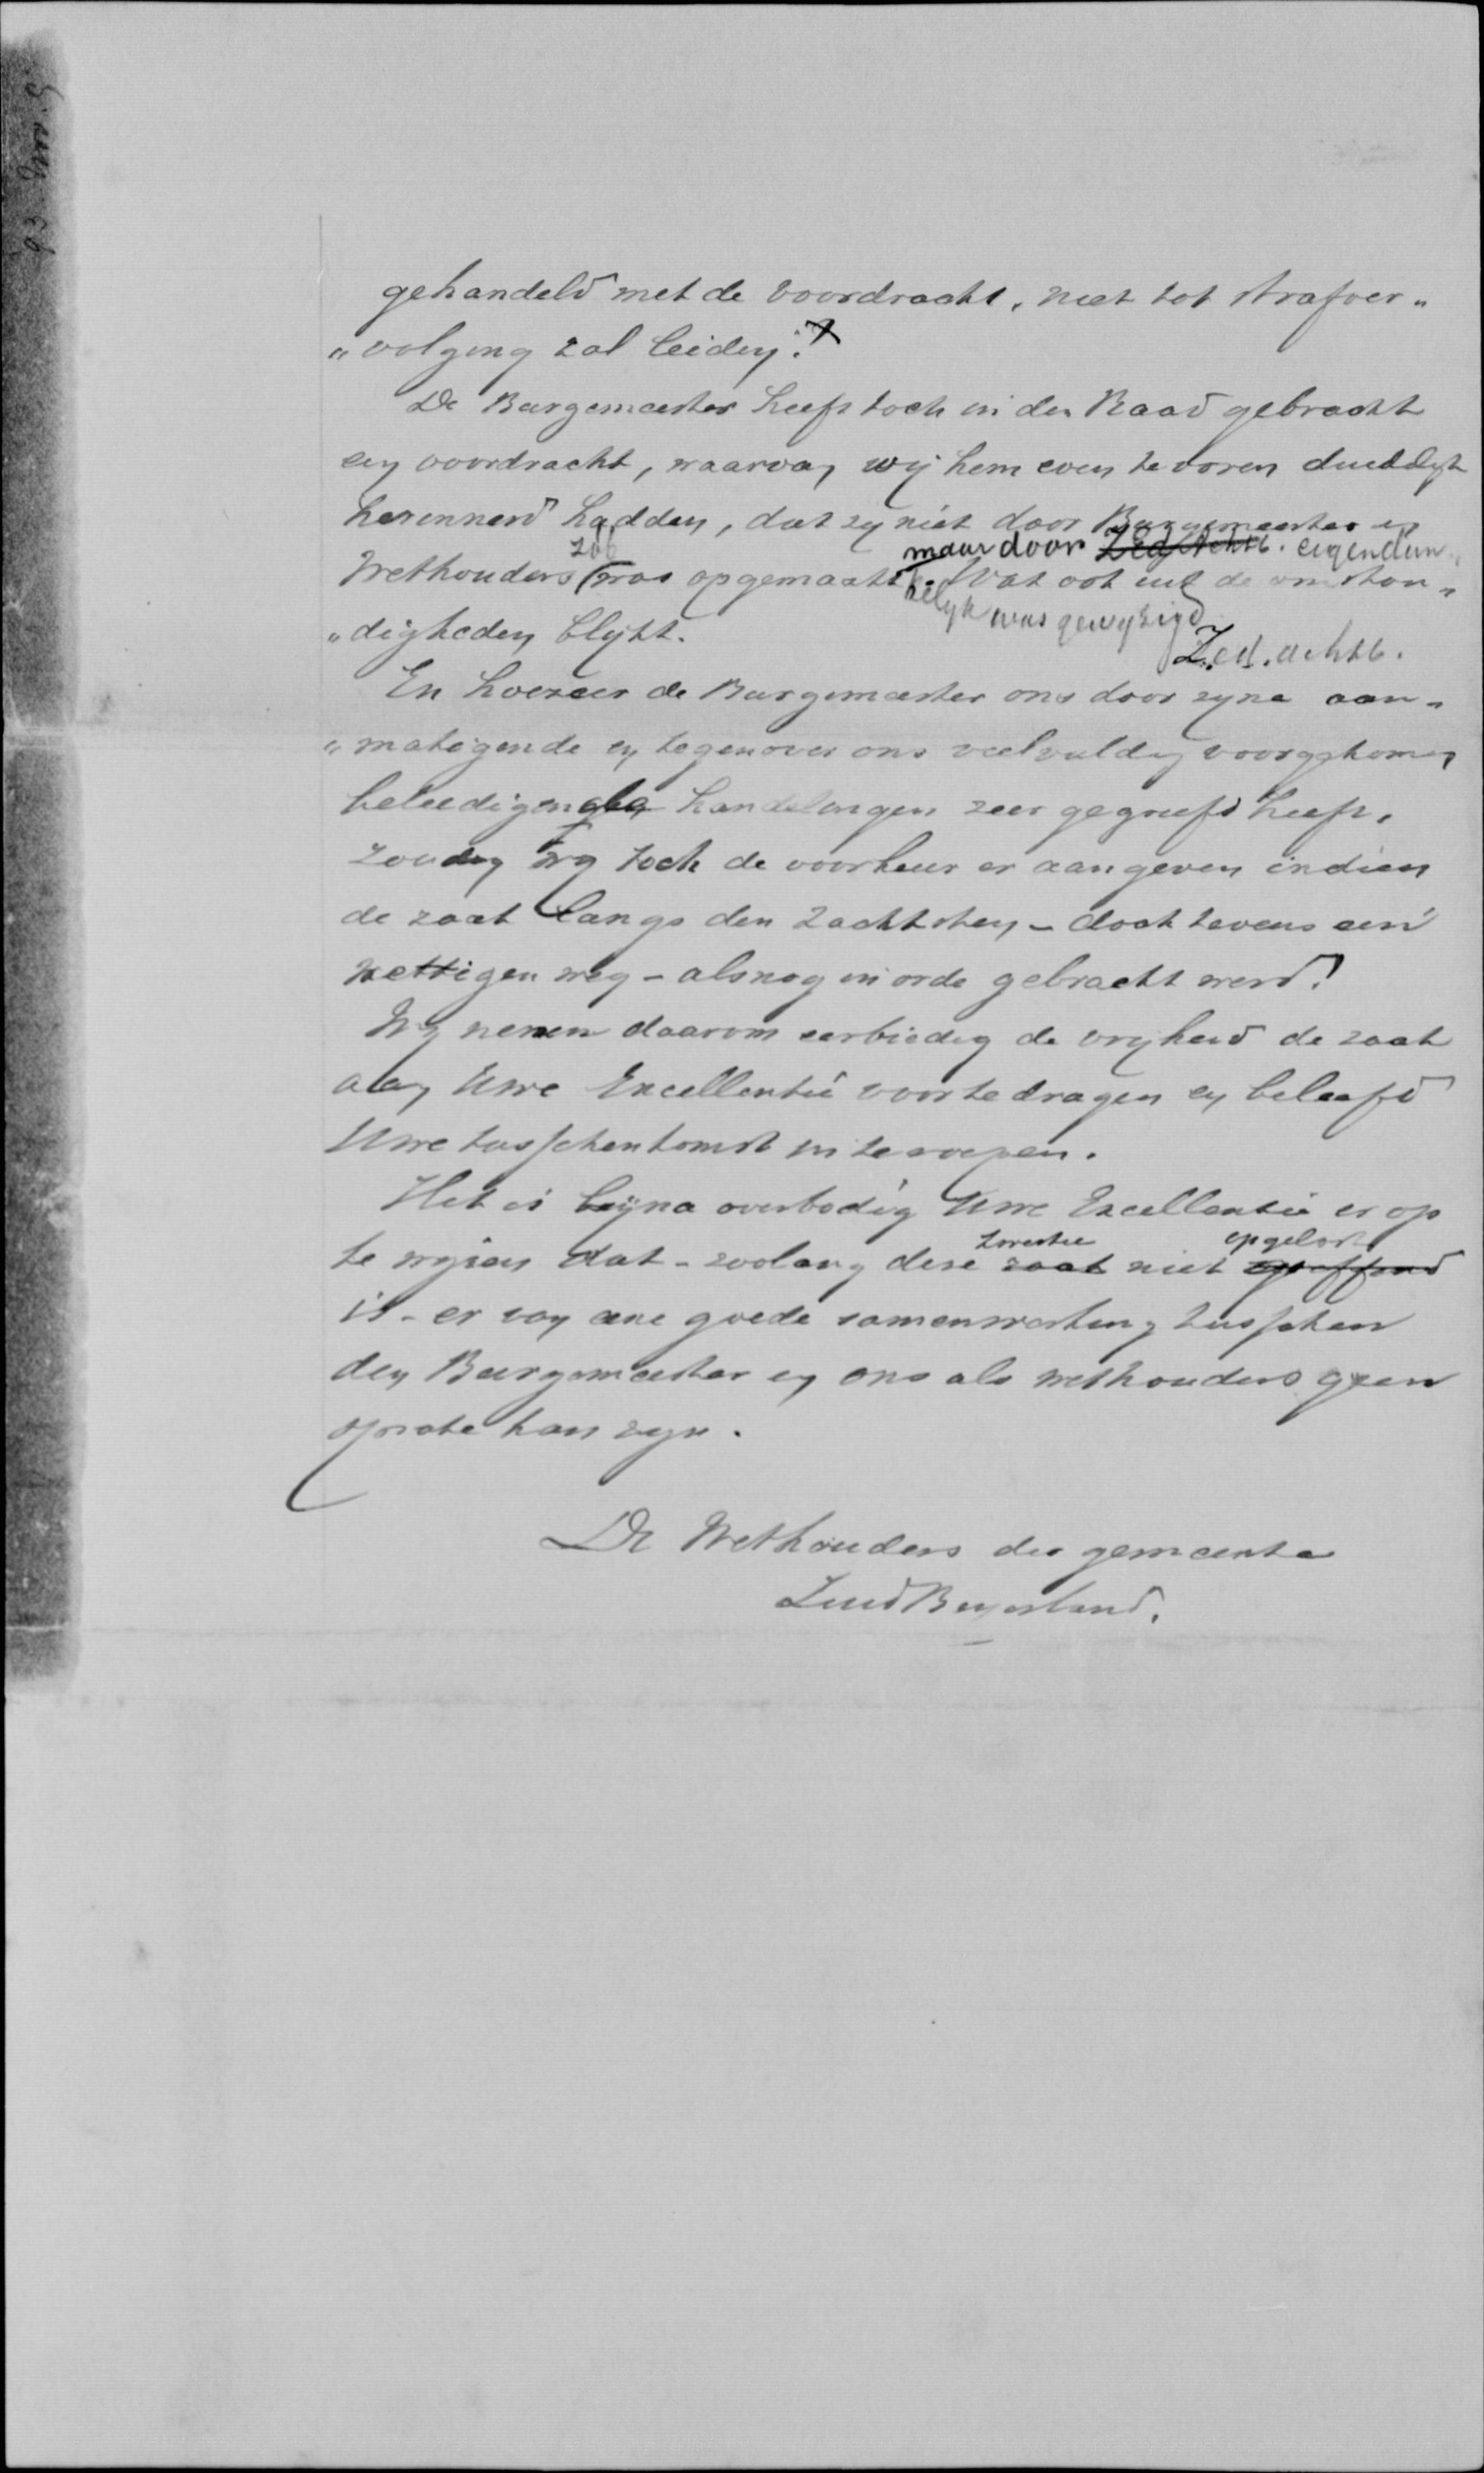 gehandeld met de voordracht, niet tot strafver„
„volging zal leiden.
De Burgemeester heeft toch in den Raad gebracht
een voordracht, waarvan wij hem even te voren duidelijk
herinnerd hadden, dat zij niet door Burgemeester en
Wethouders zoo was opgemaakt maar door Z.Ed.Achtb. eigendun„
kelijk was gewijzigd Wat ook uit de omstan„
„digheden blijkt.
Z.Ed.achtb.
En hoezeer de Burgemeester ons door zijne aan„
„matigende en tegenover ons veelvuldig voorgekomen
beleedigende handelingen zeer gegriefd heeft,
zouden wij toch de voorkeur er aan geven indien
de zaak langs den zachtsten – doch tevens een
wettigen weg – alsnog in orde gebracht werd.
Wij nemen daarom eerbiedig de vrijheid de zaak
aan Uwe Excellentie voor te dragen en beleefd
Uwe tusschenkomst in te roepen.
Het is bijna overbodig Uwe Excellentie er op
te wijzen dat – zoolang deze zaak kwestie niet opgelost
is – er van eene goede samenwerking tusschen
den Burgemeester en ons als wethouders geen
sprake kan zijn.
De Wethouders der gemeente
Zuid Beijerland.